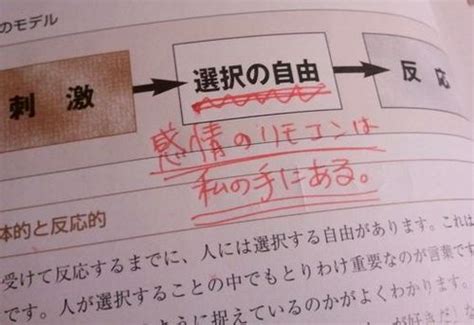 のモデル
刺激
選択の自由
反応
感情のリモコンは
私の手にある。
体的と反応的
受けて反応するまでに、人には選択する自由があります。これは
です。人が選択することの中でもとりわけ重要なのが言葉です
ように捉えているのかがよくわかります。